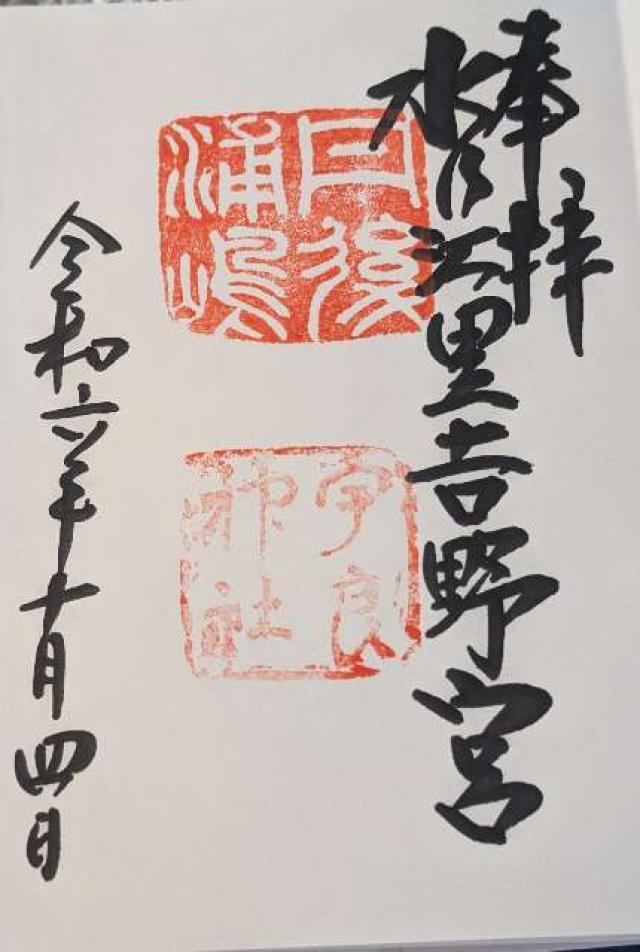 奉拝
水江里吉野宮
丹後
浦嶋
宇良
神社
令和六年十月四日